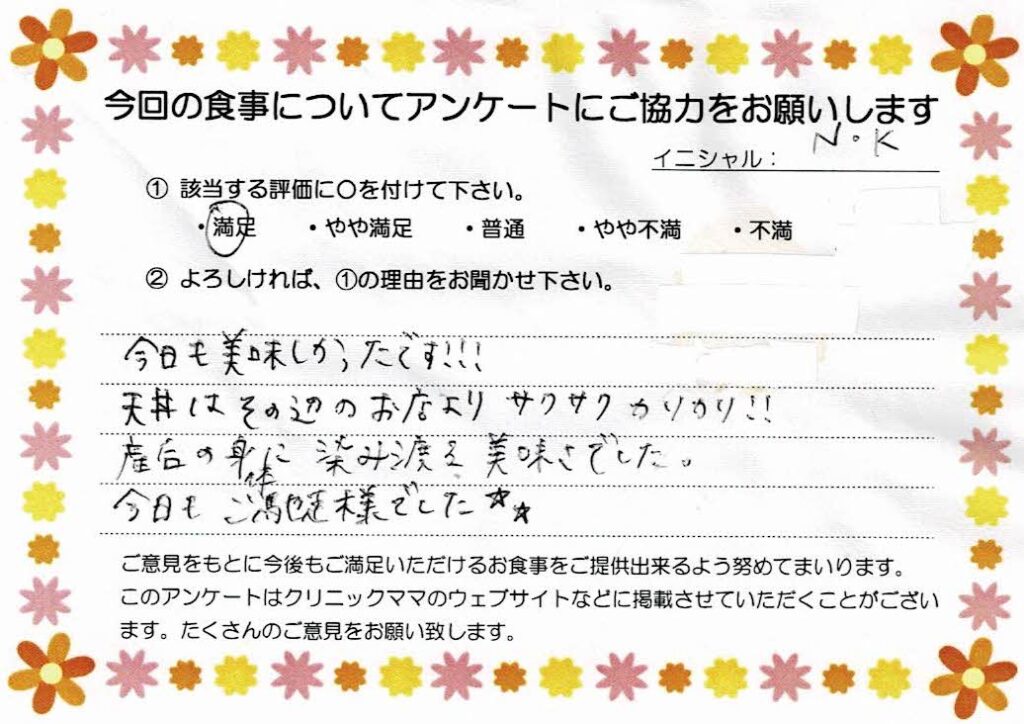 今回の食事についてアンケートにご協力をお願いします
イニシャル： N・K
① 該当する評価に〇を付けて下さい。
・満足 ・やや満足 ・普通 ・やや不満 ・不満
② よろしければ、①の理由をお聞かせ下さい。
今日も美味しかったです!!!
天丼はその辺のお店よりサクサクカリカリ!!
産后の身体に染み渡る美味さでした。
今日もご馳走様でした☆☆
ご意見をもとに今後もご満足いただけるお食事をご提供出来るよう努めてまいります。
このアンケートはクリニックママのウェブサイトなどに掲載させていただくことがござい
ます。たくさんのご意見をお願い致します。